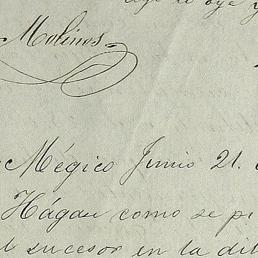 Molinos
Mégico Junio 21.
Hágase como se pi
sucesor en la dil